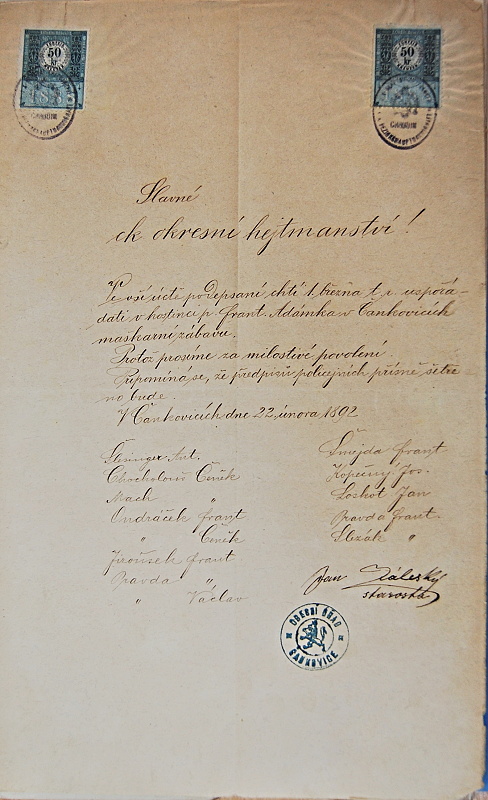 50
kr
50
kr
Slavné
ck okresní hejtmanství!
V vší úctě podepsaní chtí 1. března t. r. uspořá-
dati v hostinci p. Frant. Adámka v Čankovicích
maškarní zábavu.
Protož prosíme za milostivé povolení.
Připomíná se, že předpisů policejních přísně šetře-
no bude.
V Čankovicích dne 22. února 1892
Ant.
Chocholouš Čeněk
Mach "
Ondráček Frant
" Čeněk
Jiroušek Frant
Pravda "
" Václav
Šmejda Frant
Kopecký Jos.
Loskot Jan
Pravda Frant.
Slezák "
Jan Záleský
starosta
OBECNÍ ÚŘAD
ČANKOVICE